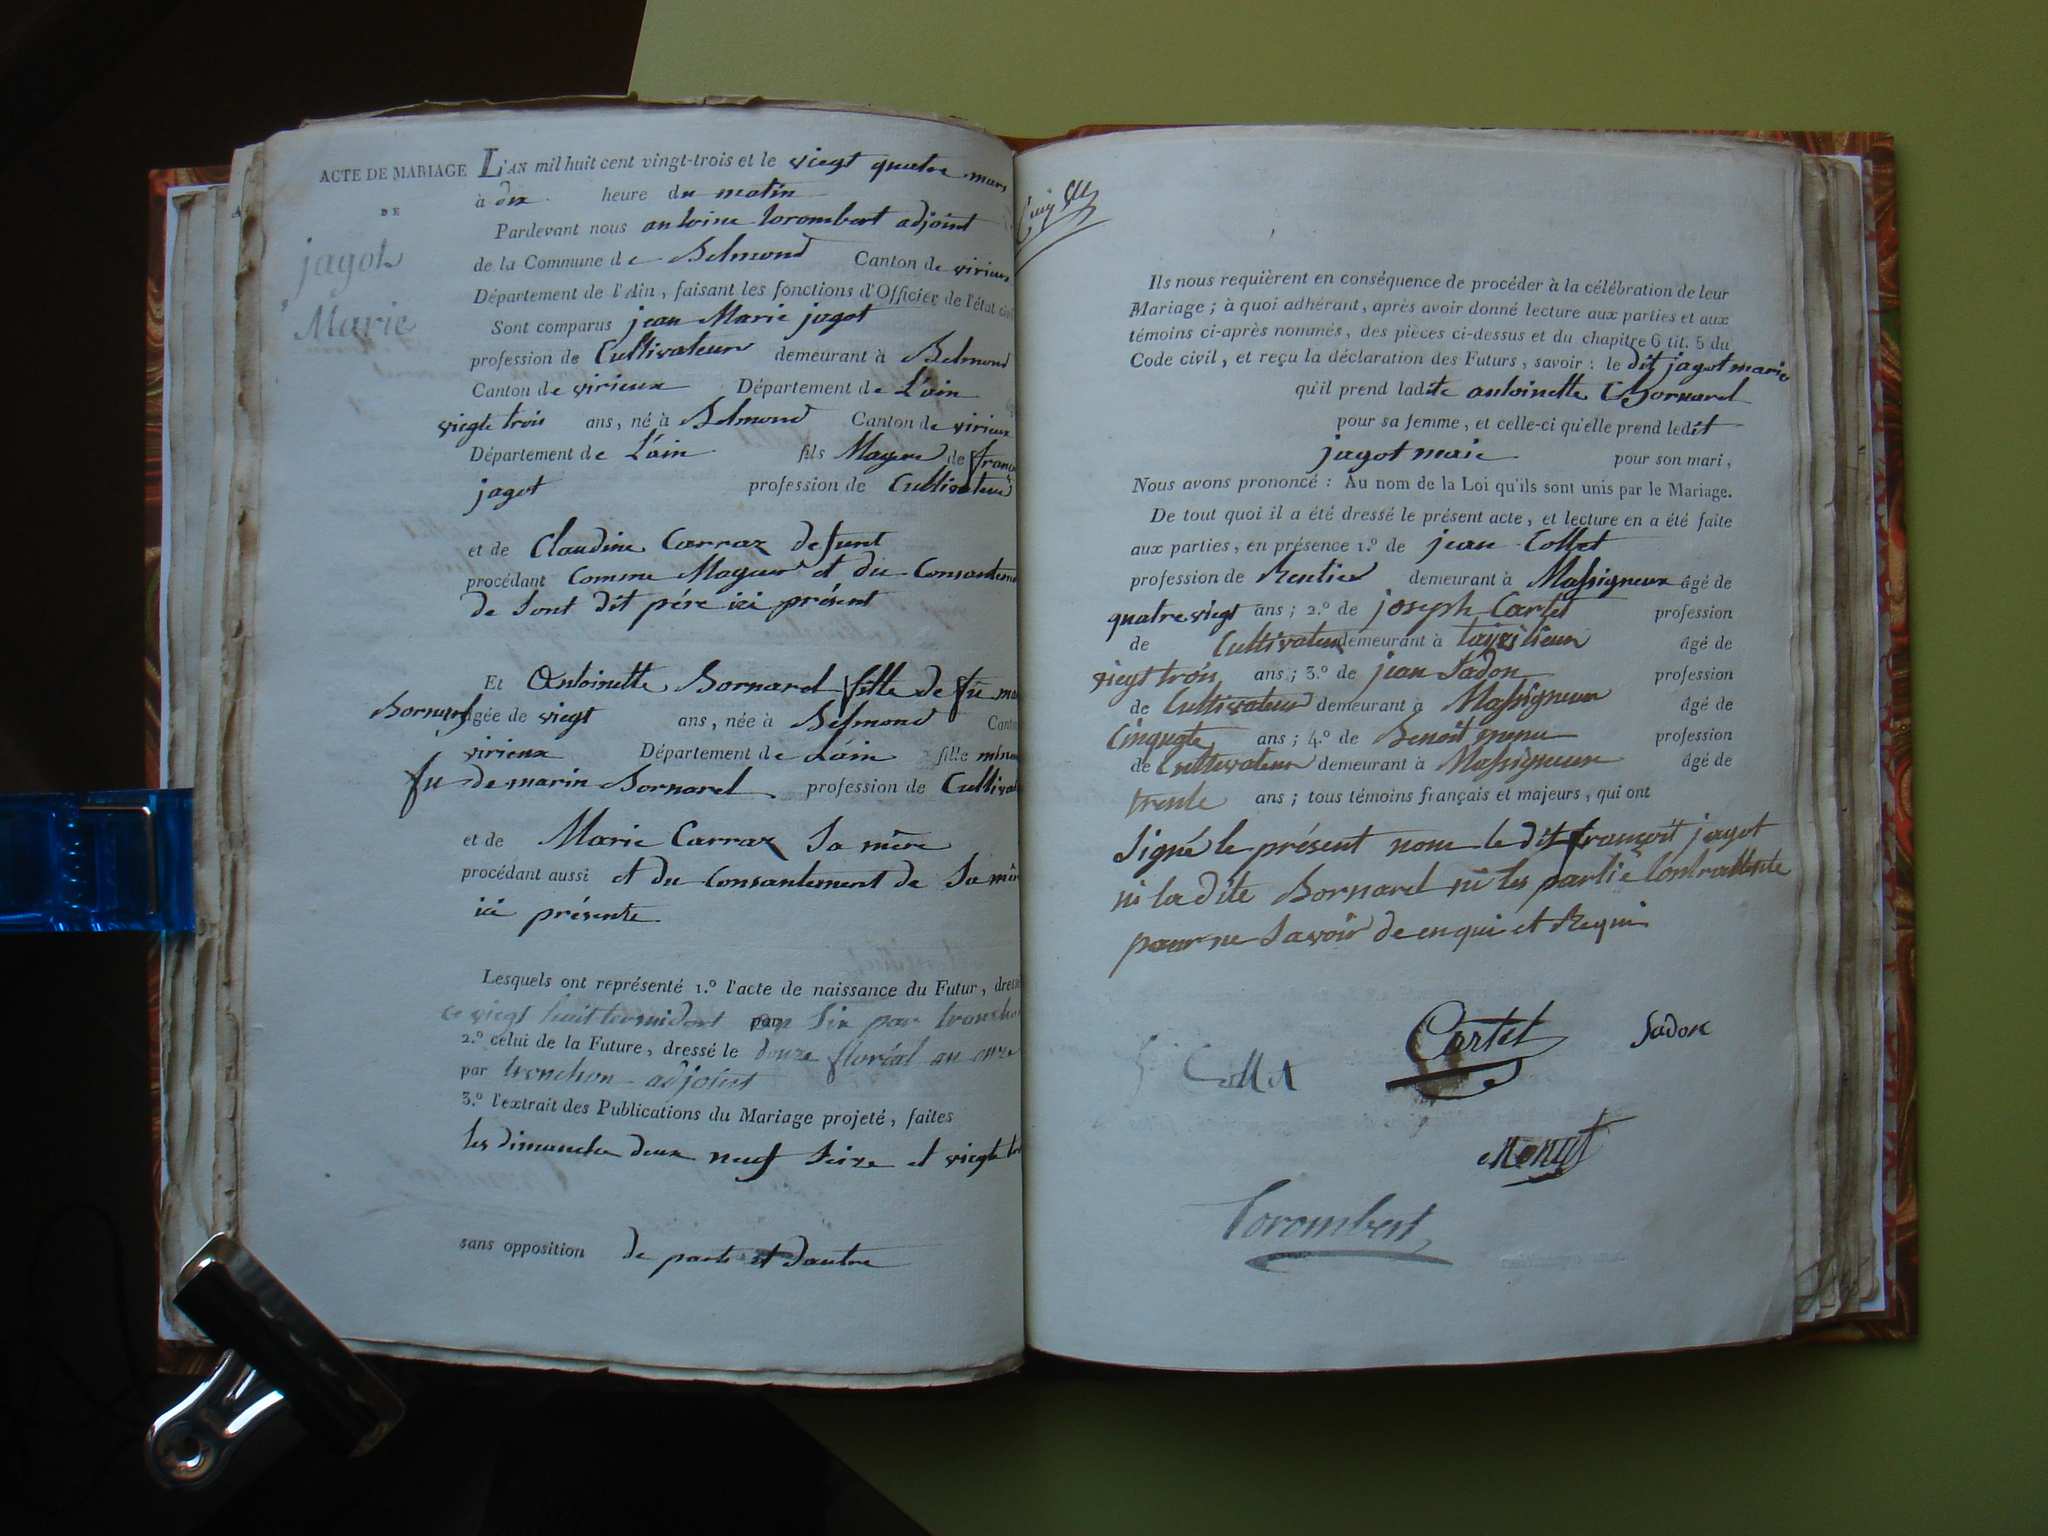 ACTE DE MARIAGE
DE
jagot
Marie
L'AN mil huit cent vingt-trois et le viegt quatre mars
à dix heure du matin
Pardevant nous antoine torombert adjoint
de la Commune de Belmond Canton de virieux
Département de l'Ain, faisant les fonctions d'Officier de l'état civil
Sont comparus jean Marie jagot
profession de Cultivateur demeurant à Belmond
Canton de virieux Département de L'ain
viegte trois ans, né à Belmond Canton de virieux
Département de L'ain fils Mageur de franç
jagot profession de Cultivateur
et de Claudine Carraz defunt
procédant Comme Mageur et du Consanteme
de Sont dit pére ici présent
Et Antoinette Bornard fille de fû ma
Bornard agée de viegt ans, née à Belmond Canton
virieux Département de L'ain fille mineu
fu de marin Bornard profession de Cultivat
et de Marie Carraz Sa mère
procédant aussi et du Consantement de Sa mèr
ici présente
Lesquels ont représenté 1.º l'acte de naissance du Futur, dressé
ce viegt huit termidort an Six par tronchon
2.º celui de la Future, dressé le douze floréal an onze
par tronchon adjoint
3.º l'extrait des Publications du Mariage projeté, faites
les dimanche deux neuf Seize et viegte tr
sans opposition de parts et dautre
Ils nous requièrent en conséquence de procéder à la célébration de leur
Mariage; à quoi adhérant, après avoir donné lecture aux parties et aux
témoins ci-après nommés, des pièces ci-dessus et du chapitre 6 tit. 5 du
Code civil, et reçu la déclaration des Futurs, savoir: le dit jagot marie
qu'il prend ladite antoinette Bornard
pour sa femme, et celle-ci qu'elle prend ledit
jagot maie pour son mari,
Nous avons prononcé: Au nom de la Loi qu'ils sont unis par le Mariage.
De tout quoi il a été dressé le présent acte, et lecture en a été faite
aux parties, en présence 1.º de jean Collet
profession de Rentier demeurant à Massigneux âgé de
quatre viegt ans; 2.º de joseph Cartet profession
de Cultivateur demeurant à âgé de
viegt trois ans; 3.º de jean Sadon profession
de Cultivateur demeurant à Massigneux âgé de
Cinquate ans; 4.º de Benoit profession
de Cultivateur demeurant à Massigneux âgé de
trente ans; tous témoins français et majeurs, qui ont
Signé le présent nom le dit françoit jagot
ni la dite Bornard ni les partie Contractente
pour ne Savoir de en qui et Requi
Collet
Cartet
Sadon
Torombert